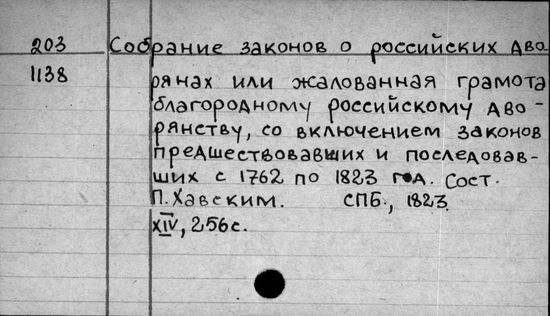 203 Собрание законов о российских дво
1138 рянах или жалованная грамота
благородному российскому дво-
рянству, со включением законов
предшествовавших и последовав-
ших с 1762 по 1823 год. Сост.
П. Хавским. СПБ., 1823
XIV, 256с.